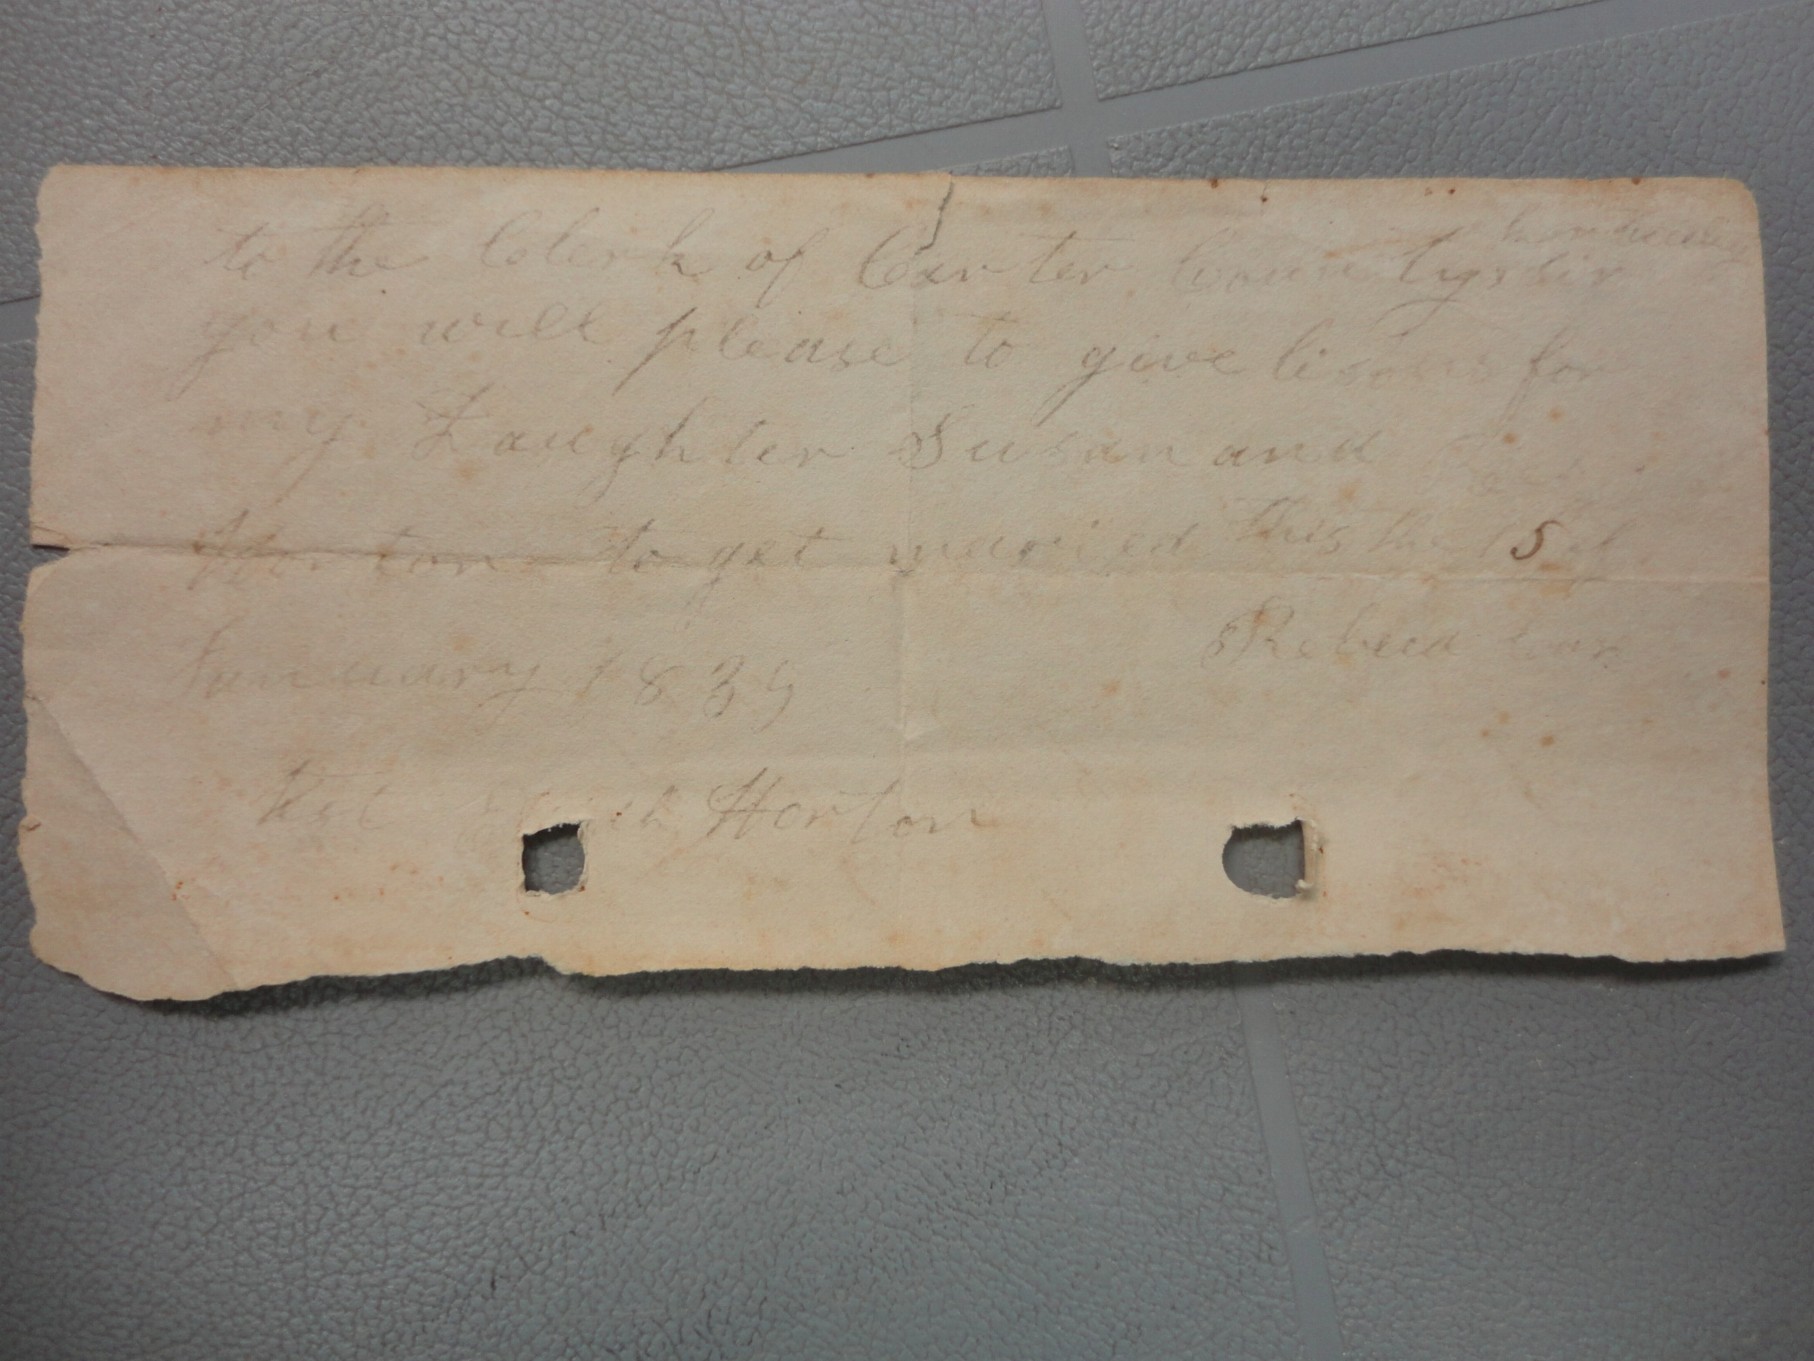 to the Clerk of Carter County sir
you will please to give lisens for
my Daughter Susan and
Horton to get maried this the 15 of
January 1839 Rebeca
Test Horton